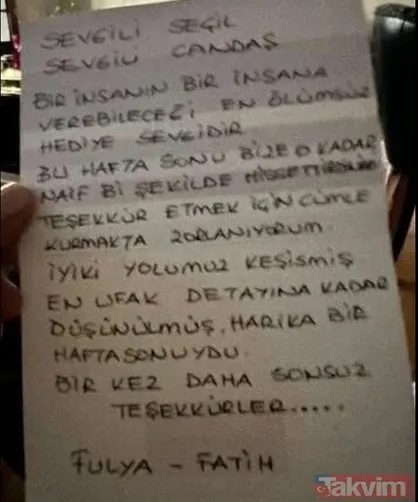 SEVGİLİ SEÇİL
SEVGİLİ CANDAŞ
BİR İNSANIN BİR İNSANA
VEREBİLECEĞİ EN ÖLÜMSÜZ
HEDİYE SEVGİDİR
BU HAFTA SONU BİZE O KADAR
NAİF Bİ ŞEKİLDE HİSSETTİRDİNİZ
TEŞEKKÜR ETMEK İÇİN CÜMLE
KURMAKTA ZORLANIYORUM.
İYİKİ YOLUMUZ KEŞİSMİŞ
EN UFAK DETAYINA KADAR
DÜŞÜNÜLMÜŞ. HARİKA BİR
HAFTASONUYDU.
BİR KEZ DAHA SONSUZ
TEŞEKKÜRLER.....
FULYA - FATİH
Takvim